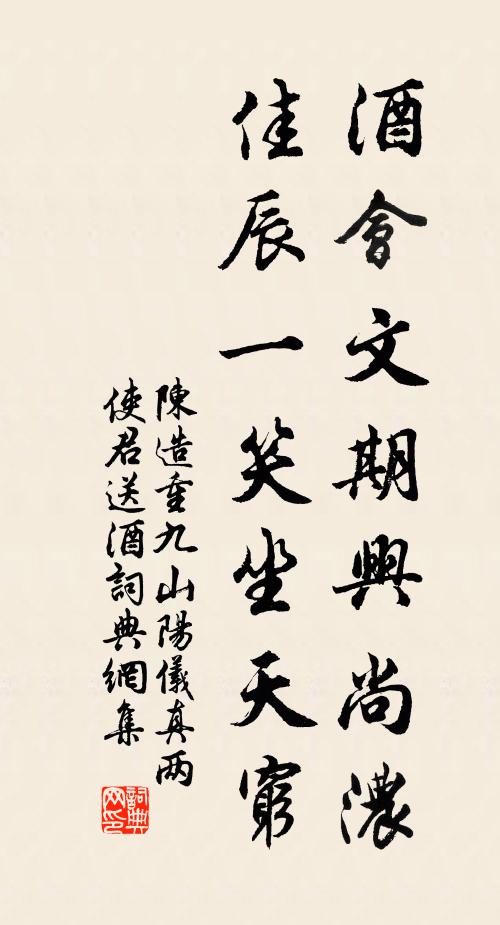 酒會文期興尚濃
佳辰一笑坐天窮
陳造重九山陽儀真两
使君送酒詞典網集
詞典
网印